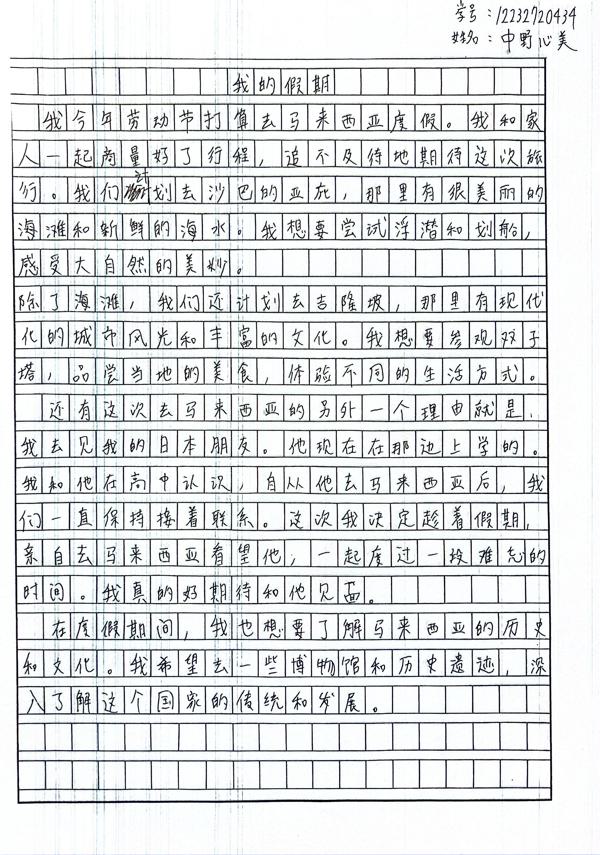 学号：12232720434
姓名：中野心美
我的假期
我今年劳动节打算去马来西亚度假。我和家
人一起商量好了行程，迫不及待地期待这次旅
行。我们计划去沙巴的亚庇，那里有很美丽的
海滩和新鲜的海水。我想要尝试浮潜和划船，
感受大自然的美妙。
除了海滩，我们还计划去吉隆坡，那里有现代
化的城市风光和丰富的文化。我想要参观双子
塔，品尝当地的美食，体验不同的生活方式。
还有这次去马来西亚的另外一个理由就是，
我去见我的日本朋友。他现在在那边上学的。
我和他在高中认识，自从他去马来西亚后，我
们一直保持接着联系。这次我决定趁着假期，
亲自去马来西亚看望他，一起度过一段难忘的
时间。我真的好期待和他见面。
在度假期间，我也想要了解马来西亚的历史
和文化。我希望去一些博物馆和历史遗迹，深
入了解这个国家的传统和发展。